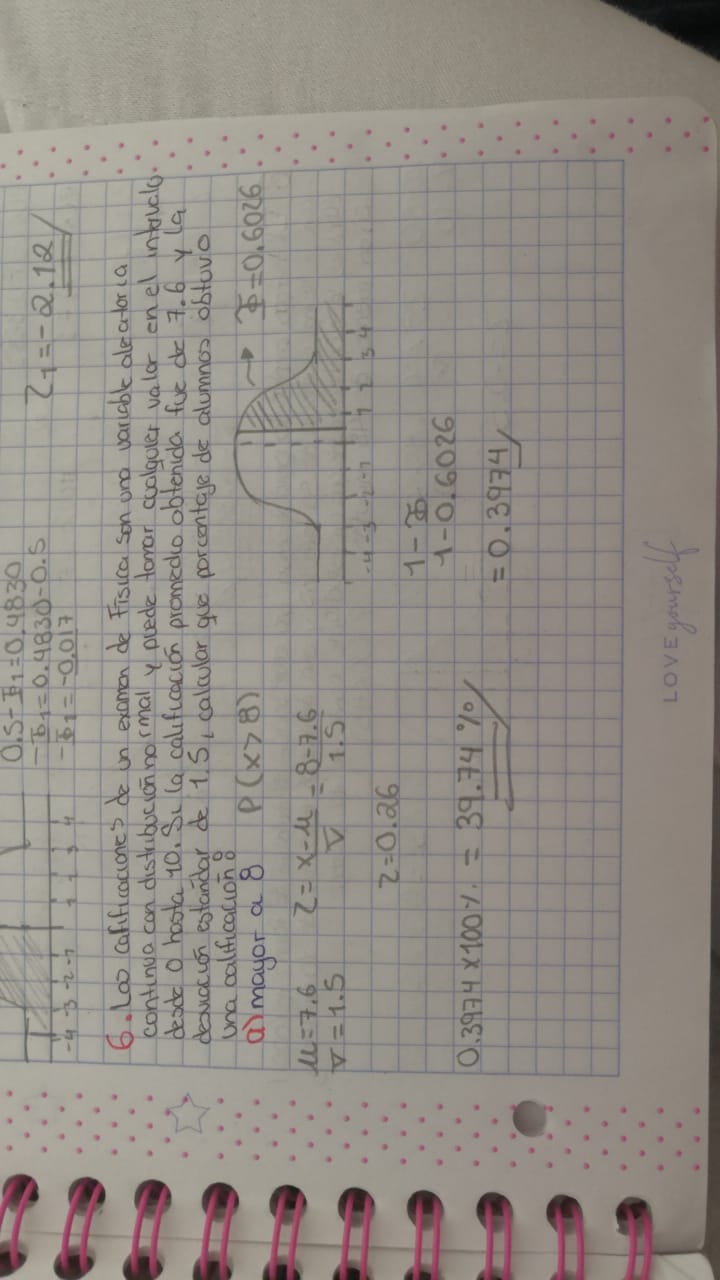 0.5-Φ1=0.4830
-Φ1=0.4830-0.5
-Φ1=-0.017
Z1=-2.12
-4 -3 -2 -1 1 2 3 4
6. Las calificaciones de un examen de Física son una variable aleatoria
continua con distribución normal y puede tomar cualquier valor en el intervalo
desde 0 hasta 10. Si la calificación promedio obtenida fue de 7.6 y la
desviación estándar de 1.5, calcular que porcentaje de alumnos obtuvo
una calificación:
a) mayor a 8 P(x>8)
Φ=0.6026
μ=7.6 Z=x-μ/σ=8-7.6/1.5
σ=1.5
-4 -3 -2 -1 1 2 3 4
z=0.26
1-Φ
1-0.6026
0.3974x100%=39.74%
=0.3974
LOVE yourself